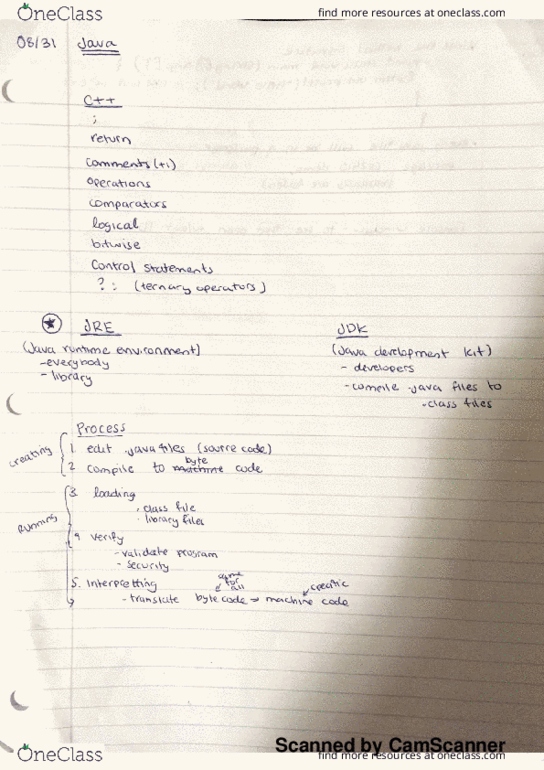 OneClass
find more resources at oneclass.com
08/31 Java
C++
;
return
comments (+1)
operations
comparators
logical
bitwise
Control statements
? : (ternary operators)
JRE
(Java runtime environment)
-everybody
- library
JDK
(Java development kit)
- developers
- compile .java files to
.class files
Process
creating
1. edit .java files (source code)
2 compile to machine byte code
running
3. loading
. class file
. library files
4 verify
- validate program
- security
5. Interpretting
same for all
specific
- translate byte code → machine code
Scanned by CamScanner
OneClass
find more resources at oneclass.com